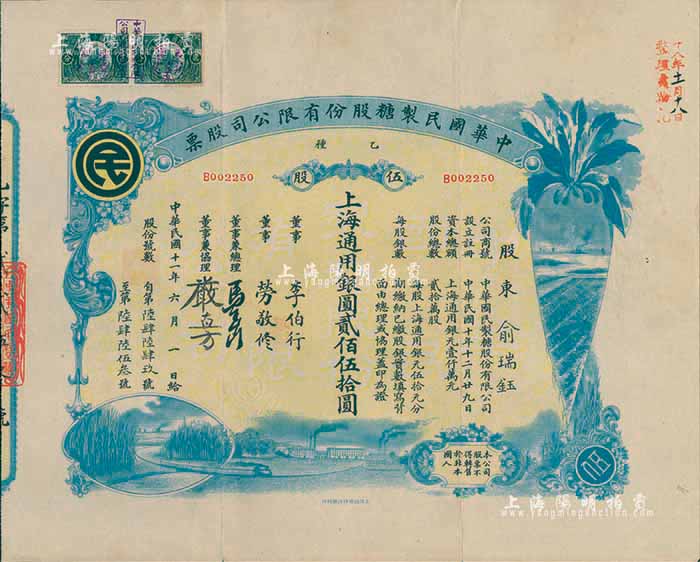 上海陽明拍賣
中華國民製糖股份有限公司股票
乙種
民
B002250
伍股
B002250
股東俞瑞鈺
公司商號 中華國民製糖股份有限公司
設立註冊 中華民國十年十二月廿九日
資本總額 上海通用銀元壹仟萬元
股份總數 貳拾萬股
每股銀數 每股上海通用銀元伍拾元分
期繳納已繳股銀實數填寫背
面由總理或協理蓋印為證
上海通用銀圓貳佰伍拾圓
董事 李伯行
董事 勞敬修
董事兼總理
董事兼協理
中華民國十一年六月一日給
股份號數 自第陸肆陸肆玖號
至第陸肆陸伍叁號
本公司
股票不
得轉售
於非本
國人
上海陽明拍賣
www.yangmingauction.com
上海陽明拍賣